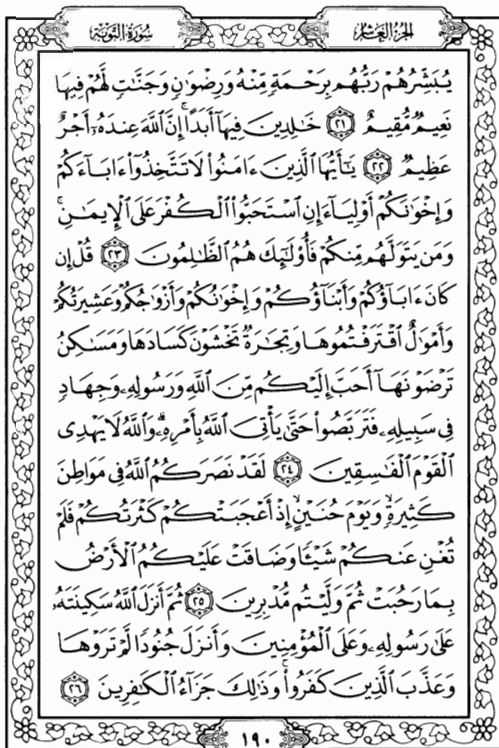 الجزء العاشر
سورة التوبة
يُبَشِّرُهُمْ رَبُّهُم بِرَحْمَةٍ مِّنْهُ وَرِضْوَٰنٍ وَجَنَّٰتٍ لَّهُمْ فِيهَا
نَعِيمٌ مُّقِيمٌ ٢١ خَٰلِدِينَ فِيهَآ أَبَدًا ۚ إِنَّ ٱللَّهَ عِندَهُۥٓ أَجْرٌ
عَظِيمٌ ٢٢ يَٰٓأَيُّهَا ٱلَّذِينَ ءَامَنُوا۟ لَا تَتَّخِذُوٓا۟ ءَابَآءَكُمْ
وَإِخْوَٰنَكُمْ أَوْلِيَآءَ إِنِ ٱسْتَحَبُّوا۟ ٱلْكُفْرَ عَلَى ٱلْإِيمَٰنِ ۚ
وَمَن يَتَوَلَّهُم مِّنكُمْ فَأُو۟لَٰٓئِكَ هُمُ ٱلظَّٰلِمُونَ ٢٣ قُلْ إِن
كَانَ ءَابَآؤُكُمْ وَأَبْنَآؤُكُمْ وَإِخْوَٰنُكُمْ وَأَزْوَٰجُكُمْ وَعَشِيرَتُكُمْ
وَأَمْوَٰلٌ ٱقْتَرَفْتُمُوهَا وَتِجَٰرَةٌ تَخْشَوْنَ كَسَادَهَا وَمَسَٰكِنُ
تَرْضَوْنَهَآ أَحَبَّ إِلَيْكُم مِّنَ ٱللَّهِ وَرَسُولِهِۦ وَجِهَادٍ
فِى سَبِيلِهِۦ فَتَرَبَّصُوا۟ حَتَّىٰ يَأْتِىَ ٱللَّهُ بِأَمْرِهِۦ ۗ وَٱللَّهُ لَا يَهْدِى
ٱلْقَوْمَ ٱلْفَٰسِقِينَ ٢٤ لَقَدْ نَصَرَكُمُ ٱللَّهُ فِى مَوَاطِنَ
كَثِيرَةٍ ۙ وَيَوْمَ حُنَيْنٍ ۙ إِذْ أَعْجَبَتْكُمْ كَثْرَتُكُمْ فَلَمْ
تُغْنِ عَنكُمْ شَيْـًٔا وَضَاقَتْ عَلَيْكُمُ ٱلْأَرْضُ
بِمَا رَحُبَتْ ثُمَّ وَلَّيْتُم مُّدْبِرِينَ ٢٥ ثُمَّ أَنزَلَ ٱللَّهُ سَكِينَتَهُۥ
عَلَىٰ رَسُولِهِۦ وَعَلَى ٱلْمُؤْمِنِينَ وَأَنزَلَ جُنُودًا لَّمْ تَرَوْهَا
وَعَذَّبَ ٱلَّذِينَ كَفَرُوا۟ ۚ وَذَٰلِكَ جَزَآءُ ٱلْكَٰفِرِينَ ٢٦
١٩٠